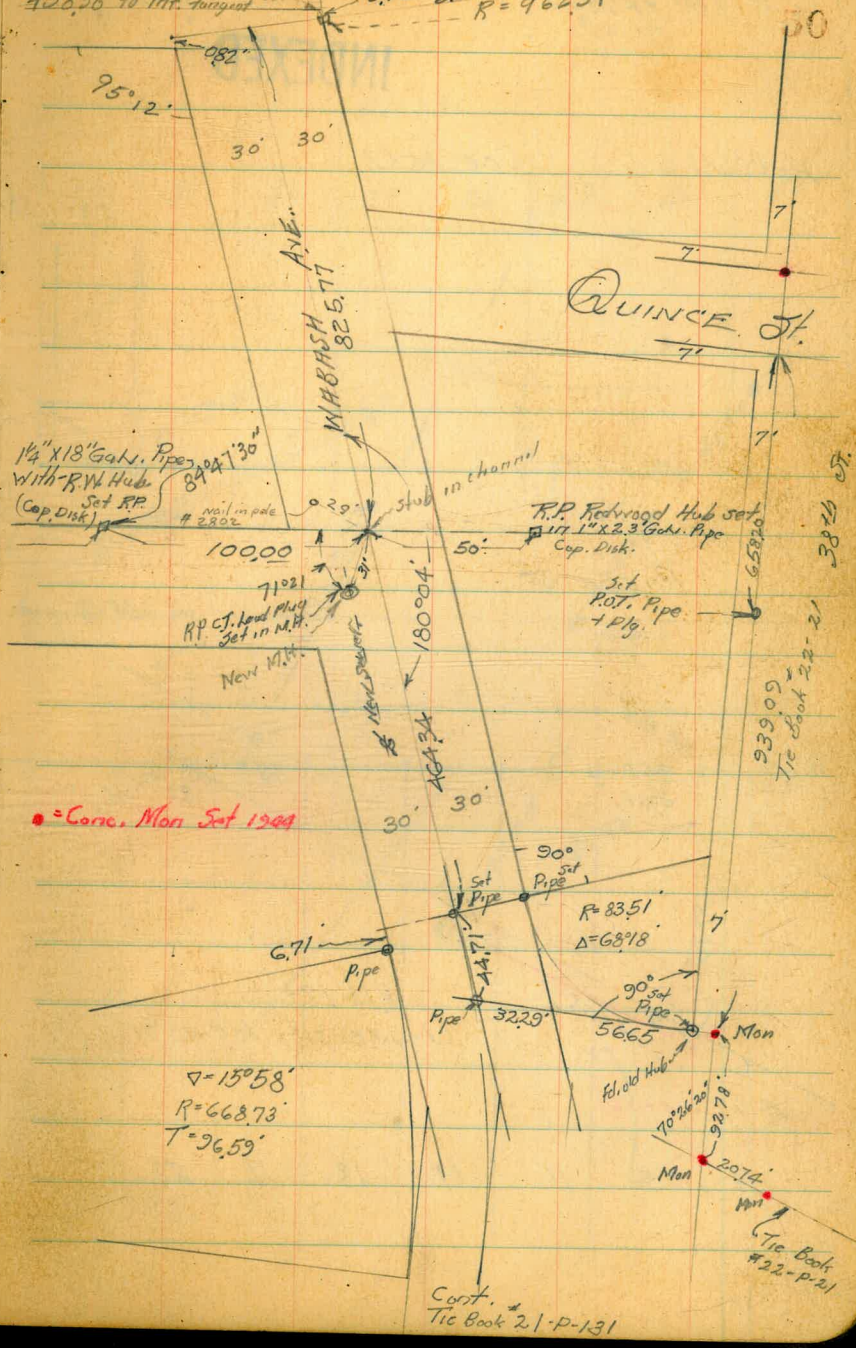 420.20 to Int. tangent
50
INDEXED
0.82'
95°12'
30' 30'
WABASH AVE.
825.77
7'
7'
QUINCE St.
7'
7'
1¼" X 18" Galv. Pipe
With R.W. Hub
(Cop. Disk) Set R.P.
84°47'30"
nail in pole
# 2802
0.29'
Stub in channel
R.P. Redwood Hub set
in 1" X 2.3' Galv. Pipe
Cop. Disk.
100.00
50'
31'
71°21
R.P. C.I. Lead Plug
Set in M.H.
New M.H.
New Sewer
180°04'
464.34
Set
P.O.T. Pipe
+ Plg.
658.20
38th St.
939.09
Tie Book # 22-21
30' 30'
• = Conc. Mon Set 1944
90°
Set
Pipe
Set
Pipe
R=83.51'
Δ=68°18'
7'
6.71
Pipe
44.71'
90°
Set
Pipe
Pipe
32.29'
56.65
Mon
Fd. old Hub
Δ=15°58'
R=668.73'
T=96.59'
70°26'20"
92.78'
Mon
20.74'
Mon
Tie Book
#22-P-21
Cont.
Tie Book #21-P-131